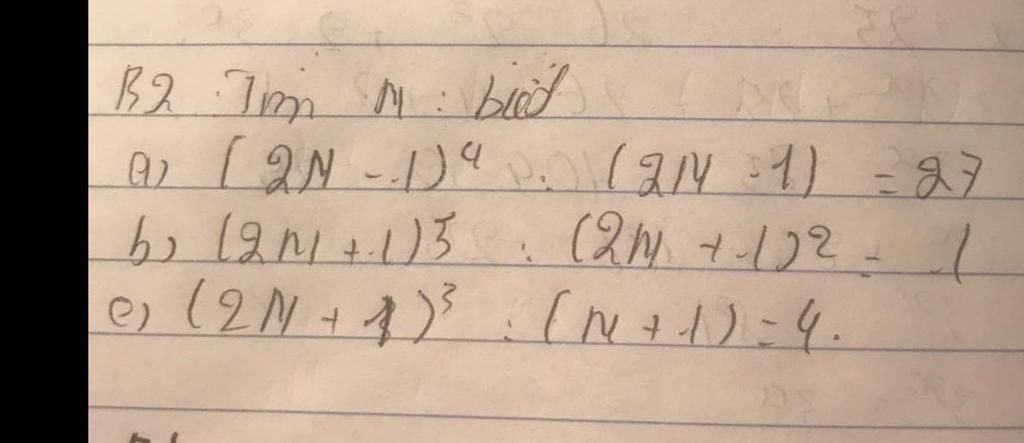 B2. Tìm n : biết
a) (2n - 1)⁴ : (2n - 1) = 27
b) (2n + 1)⁵ : (2n + 1)² = 1
c) (2n + 1)³ : (n + 1) = 4.